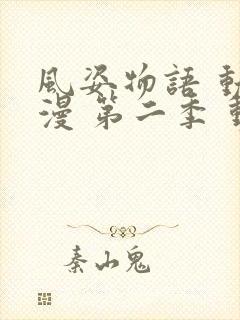 風姿物語 動
漫 第二季 動
秦山鬼